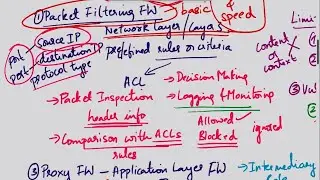 ① Packet Filtering FW → basic & speed
Network Layer/Layer3
Source IP
port destination IP
port protocol type
predefined rules or criteria
ACL
→ Decision Making
→ Packet Inspection
header info
→ Logging & Monitoring
Allowed
Blocked
ignored
→ Comparison with ACLs
rules
③ Proxy FW – Application Layer FW → Intermediary
Limi
content or context
①
②
③ VW
②